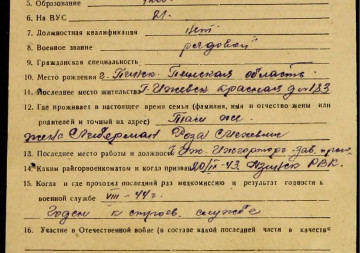 5. Образование
6. На ВУС 21.
7. Должностная квалификация нет
8. Военное звание рядовой
9. Гражданская специальность
10. Место рождения г. Пинск. Пинская область
11. Последнее место жительства г. Ижевск Красная д. № 183
12. Где проживает в настоящее время семья (фамилия, имя и отчество жены или
родителей и точный их адрес) Там же
жена Либерман Роза
13. Последнее место работы и должность Иж. зав.
14. Каким райгорвоенкоматом и когда призван 43. РВК.
15. Когда и где проходил последний раз медкомиссию и результат годности к
военной службе VIII – 44 г.
Годен к строев. службе
16. Участие в Отечественной войне (в составе какой последней части в качестве